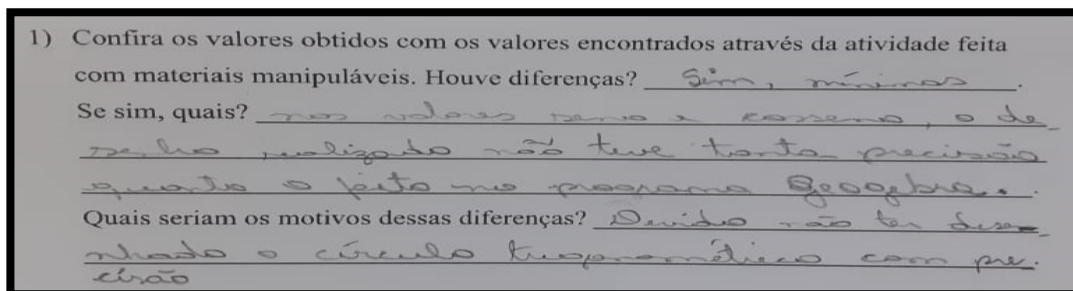 1) Confira os valores obtidos com os valores encontrados através da atividade feita
com materiais manipuláveis. Houve diferenças? Sim, mínimas.
Se sim, quais? nos valores seno e cosseno, o de_
senho realizado não teve tanta precisão
quanto o feito no programa Geogebra.
Quais seriam os motivos dessas diferenças? Devido não ter dese_
nhado o círculo trigonométrico com pre.
cisão